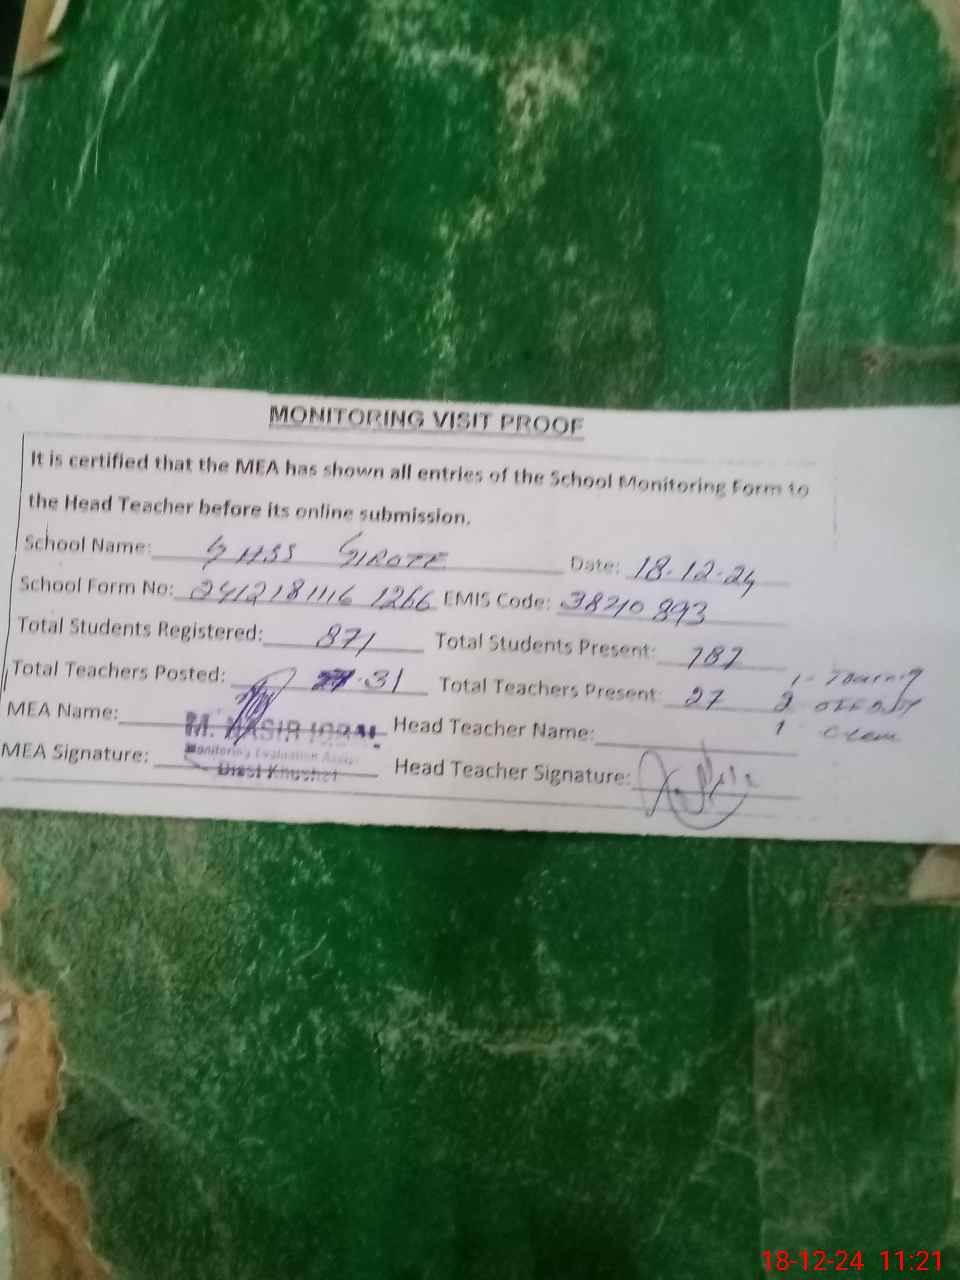 MONITORING VISIT PROOF
It is certified that the MEA has shown all entries of the School Monitoring Form to
the Head Teacher before its online submission.
School Name: GHSS GIROTE Date: 18-12-24
School Form No: 2412181116 1266 EMIS Code: 38210893
Total Students Registered: 871 Total Students Present: 787
Total Teachers Posted: 31 Total Teachers Present: 27
1-
2
1
MEA Name: M. NASIR IQBAL Head Teacher Name:
Monitoring Evaluation Assist
MEA Signature: Distt Khushab Head Teacher Signature:
18-12-24 11:21